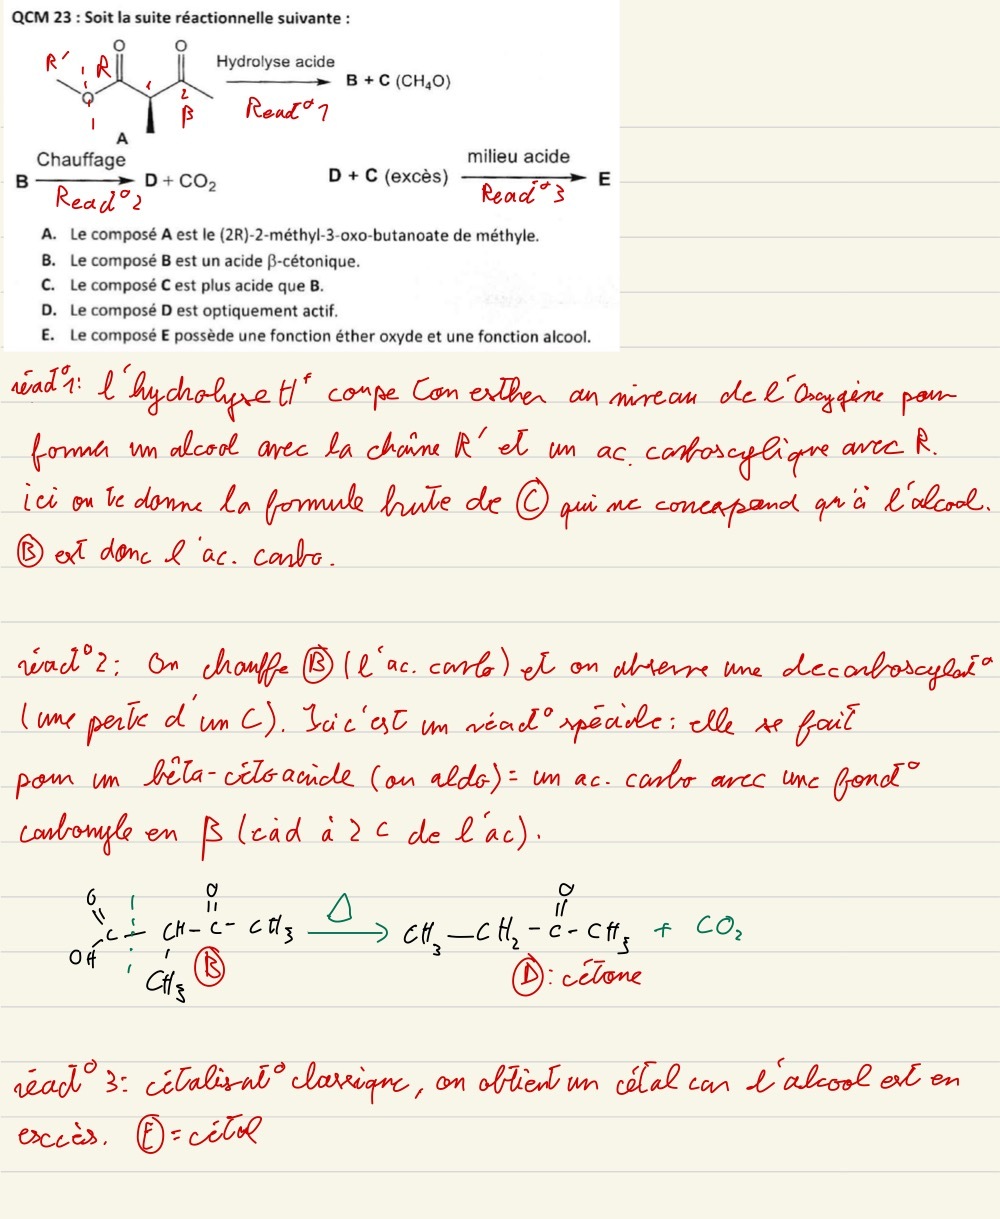 QCM 23 : Soit la suite réactionnelle suivante :
O O
R' R
O
1 2
β
A
Hydrolyse acide
Read° 1
B + C (CH₄O)
Chauffage
B → D + CO₂
Read° 2
D + C (excès) → E
milieu acide
Read° 3
A. Le composé A est le (2R)-2-méthyl-3-oxo-butanoate de méthyle.
B. Le composé B est un acide β-cétonique.
C. Le composé C est plus acide que B.
D. Le composé D est optiquement actif.
E. Le composé E possède une fonction éther oxyde et une fonction alcool.
réact° 1: l'hydrolyse H⁺ coupe l'on esther au niveau de l'Oxygène pour
former un alcool avec la chaîne R' et un ac. carboxylique avec R.
ici on te donne la formule brute de Ⓒ qui ne correspond qu'à l'alcool.
Ⓑ est donc l'ac. carbo.
réact° 2: On chauffe Ⓑ (l'ac. carbo) et on observe une decarboxylat°
(une perte d'un C). Ici c'est un réact° spéciale: elle se fait
pour un bêta-cétoacide (ou aldo) = un ac. carbo avec une fonct°
carbonyle en β (càd à 2 C de l'ac).
O O O
C - CH - C - CH₃ Δ → CH₃ - CH₂ - C - CH₃ + CO₂
OH CH₃ Ⓑ Ⓓ: cétone
réact° 3: cétalisat° classique, on obtient un cétal car l'alcool est en
excès. Ⓔ = cétal